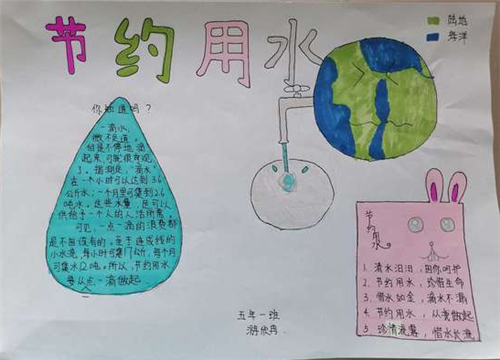 节约用水
陆地
海洋
你知道吗？
一滴水，
微不足道，
但是不停地滴
起来，可就很可观
了，据测定，“滴水”
在一个小时可以达到3.6
公斤水；一个月里可集到2.6
吨水。这些水量，足可以
供给于一个人的生活所需，
可见，一点一滴的浪费都
是不应该有的。至于连成线的
小水流，每小时可集17公斤，每个月
可集水12吨。所以，节约用水
要从点一滴做起
节约用水
1、清水汩汩，因你呵护
2、节约用水，珍惜生命
3、惜水如金，滴水不漏
4、节约用水，从我做起
5、珍情流露，惜水长流
五年一班